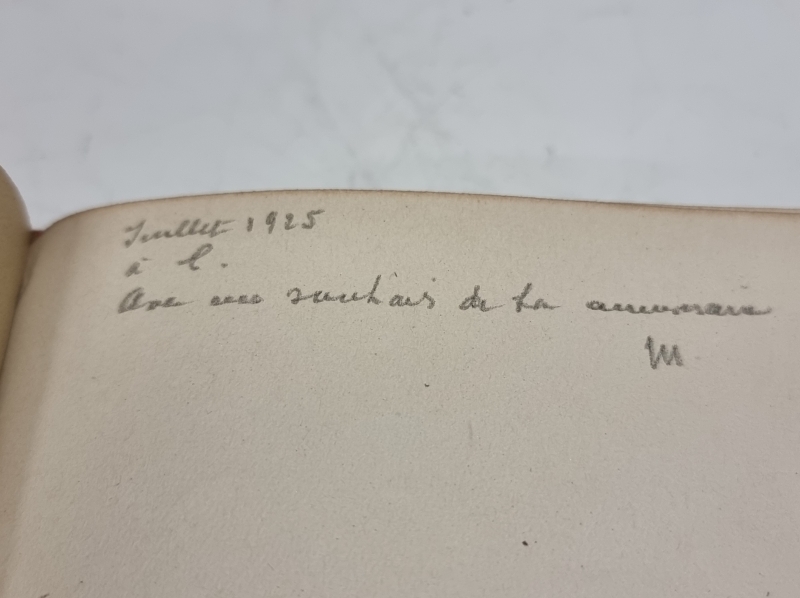 Juillet 1925
à C.
Avec mes souhaits de bon anniversaire
M